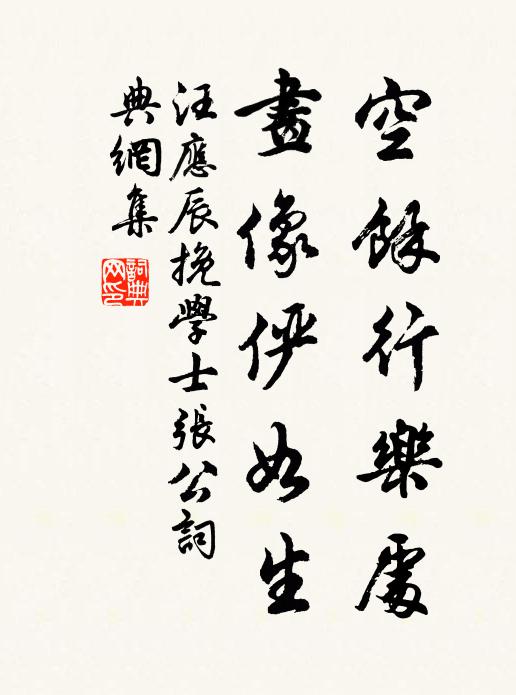 空餘行樂處
畫像儼如生
汪應辰挽學士張公詞
典網集
詞典
网印